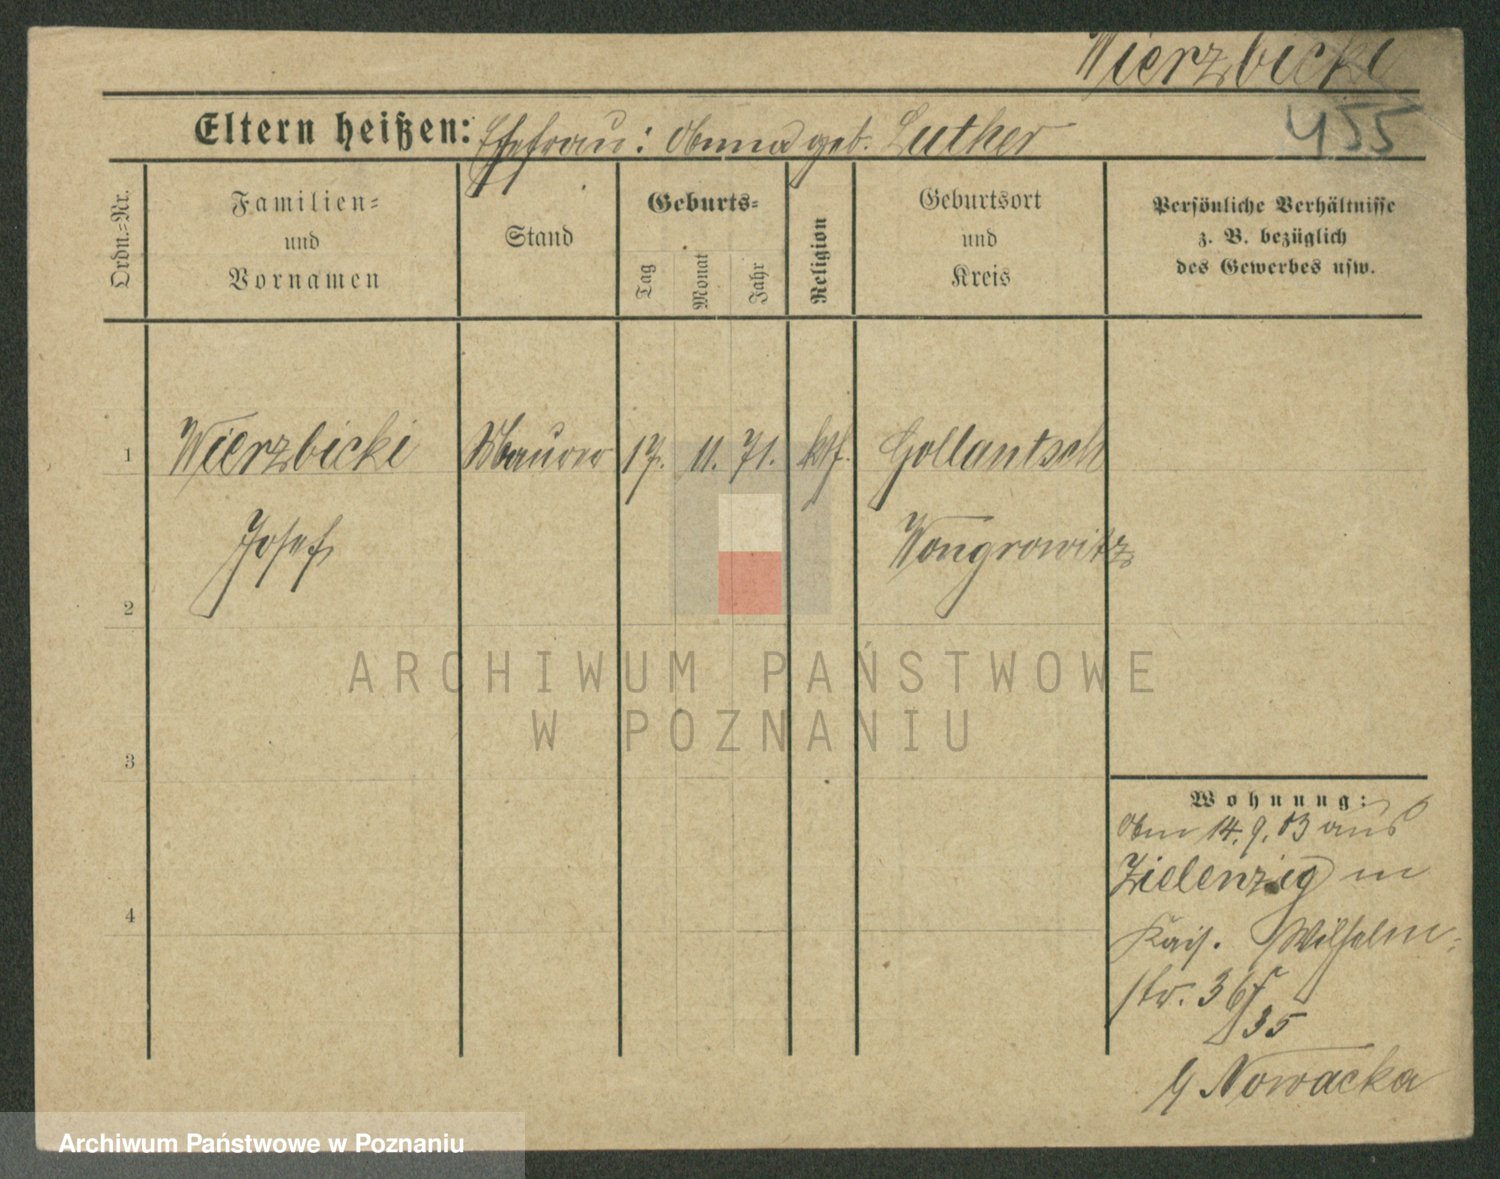 Wierzbicki
455
Eltern heißen: Ehefrau: Anna geb. Luther
Ordn.-Nr.
Familien-
und
Vornamen
Stand
Geburts-
Tag
Monat
Jahr
Religion
Geburtsort
und
Kreis
Persönliche Verhältnisse
z. B. bezüglich
des Gewerbes usw.
1
Wierzbicki
Maurer
17.
11.
71.
kth.
Gollantsch
Josef
Wongrowitz
2
ARCHIWUM PAŃSTWOWE
W POZNANIU
3
4
Wohnung:
Am 14.9.03 aus
Zielenzig in
Kais. Wilhelm-
str. 36
35
Nowacka
Archiwum Państwowe w Poznaniu